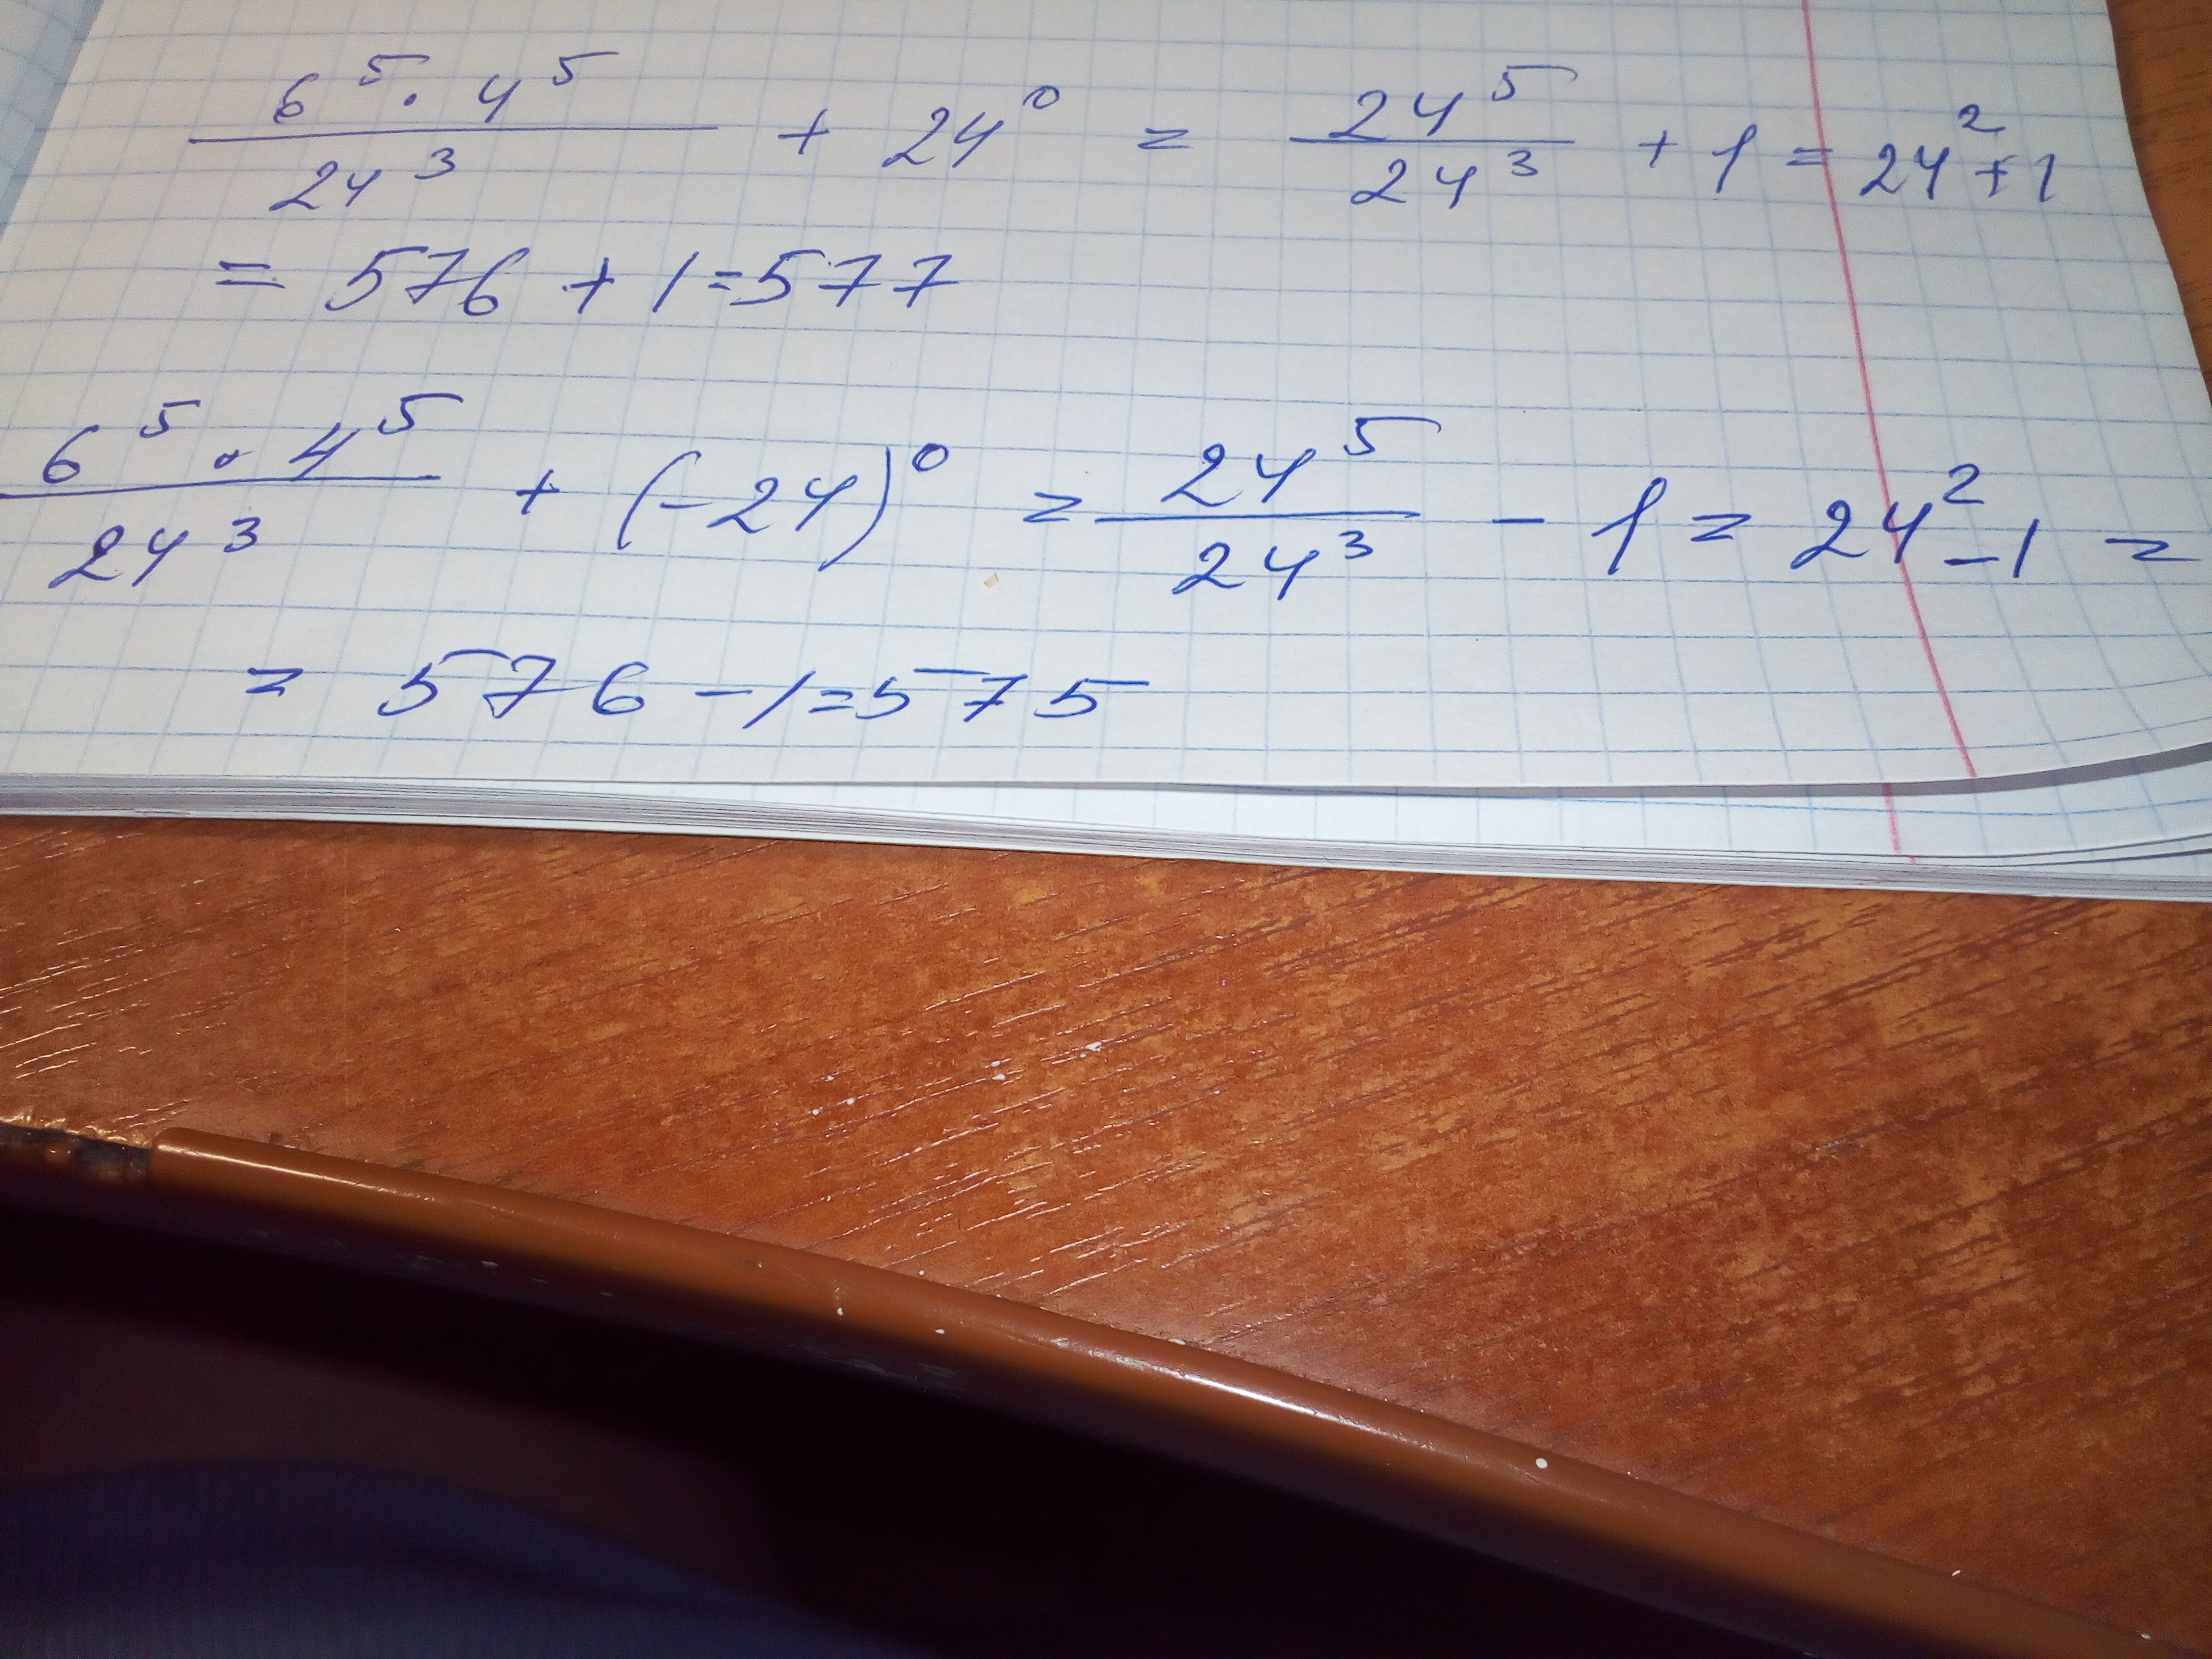 6⁵ · 4⁵ / 24³ + 24⁰ = 24⁵ / 24³ + 1 = 24² + 1
= 576 + 1 = 577
6⁵ · 4⁵ / 24³ + (-24)⁰ = 24⁵ / 24³ - 1 = 24² - 1 =
= 576 - 1 = 575